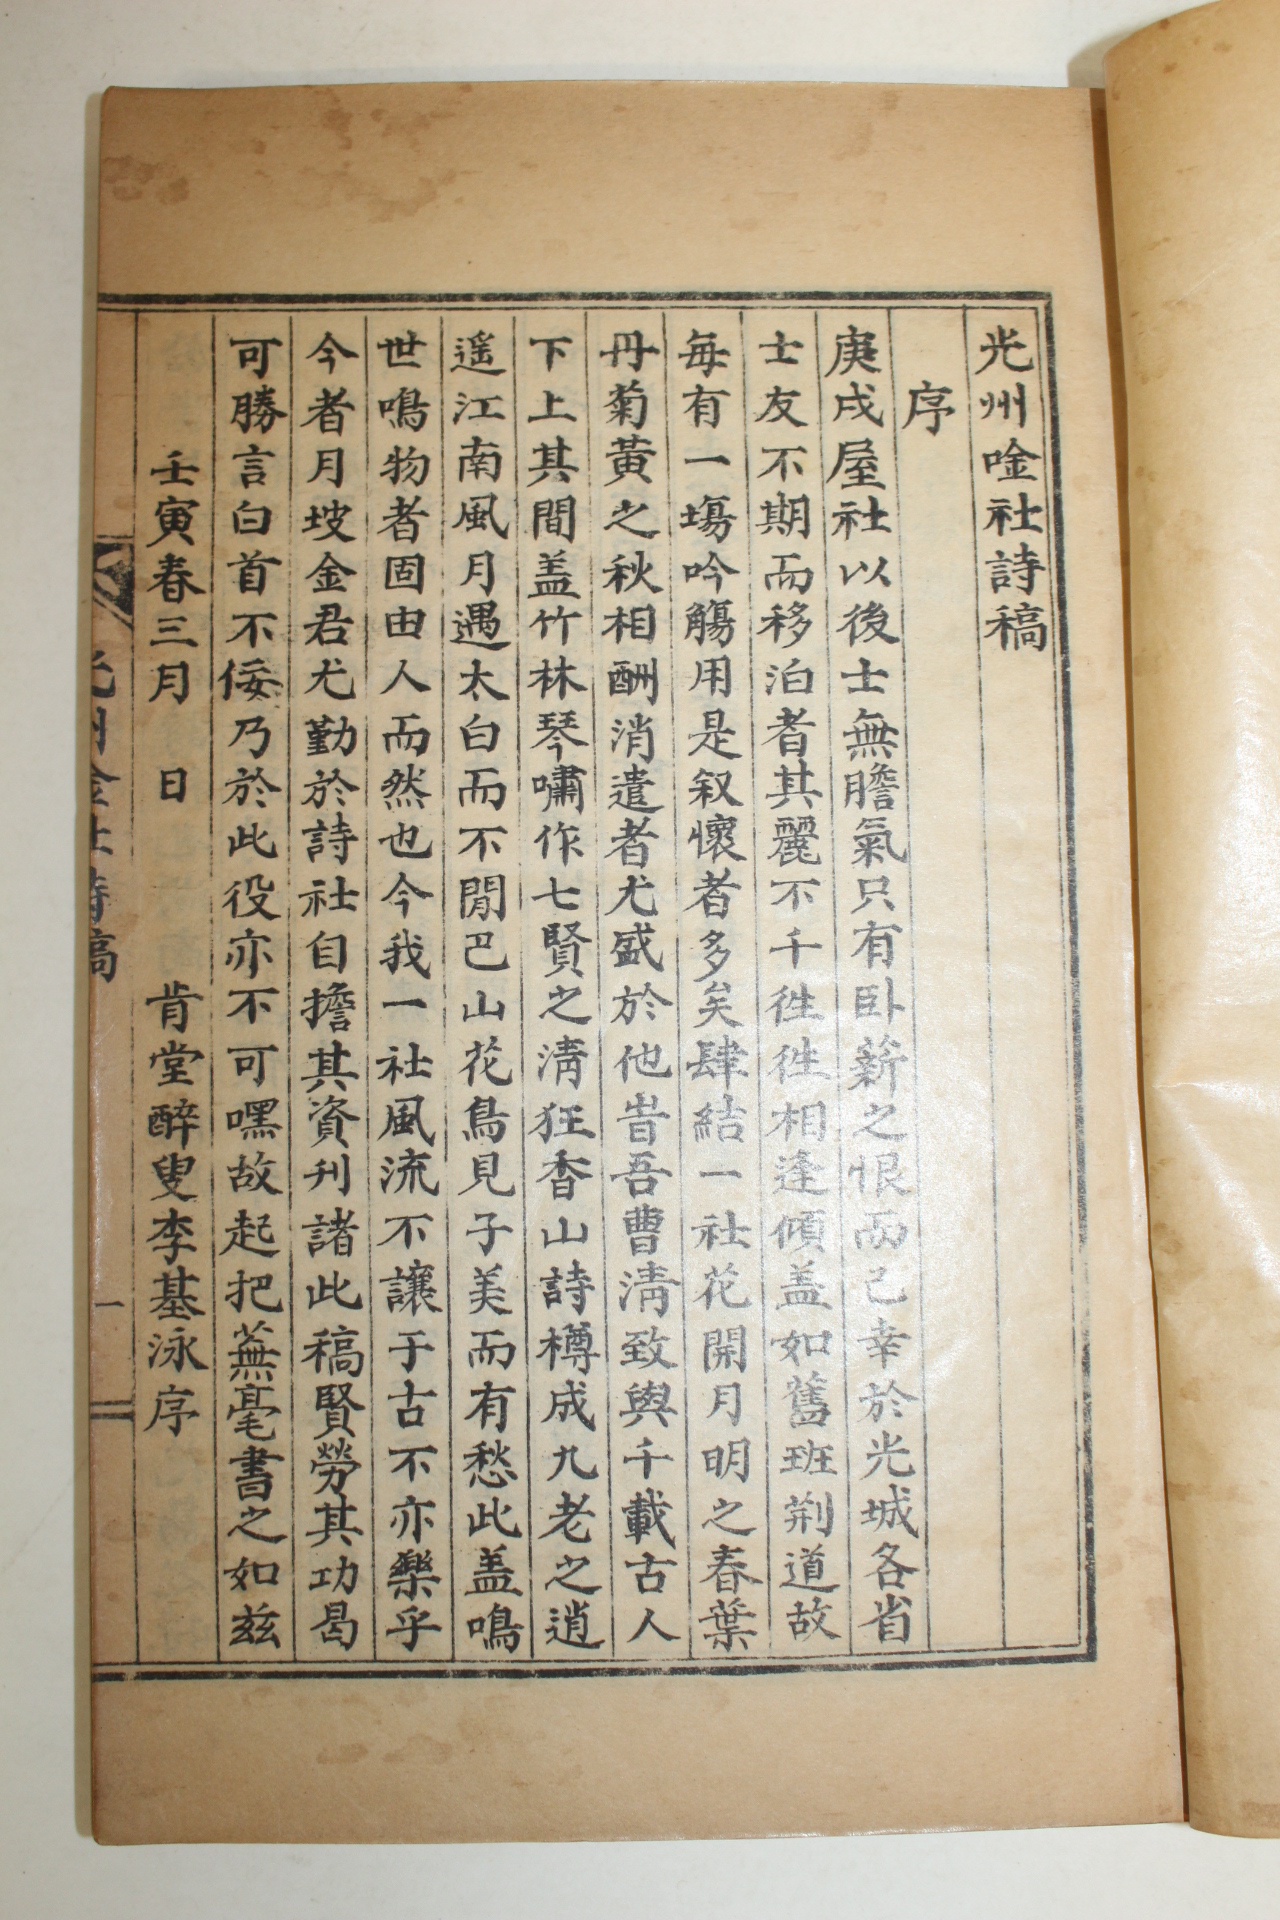 光州唫社詩稿
序
庚戌屋社以後士無膽氣只有卧薪之恨而已幸於光城各省
士友不期而移泊者其麗不千徃徃相逢傾盖如舊班荆道故
每有一塲吟觴用是叙懷者多矣肆結一社花開月明之春葉
丹菊黃之秋相酬消遣者尤盛於他昔吾曹淸致與千載古人
下上其間盖竹林琴嘯作七賢之淸狂香山詩樽成九老之逍
遥江南風月遇太白而不閒巴山花鳥見子美而有愁此盖鳴
世鳴物者固由人而然也今我一社風流不讓于古不亦樂乎
今者月坡金君尤勤於詩社自擔其資刋諸此稿賢勞其功曷
可勝言白首不佞乃於此役亦不可嘿故起把蕪毫書之如玆
壬寅春三月　日　　肯堂醉叟李基泳序
光州唫社詩稿　一